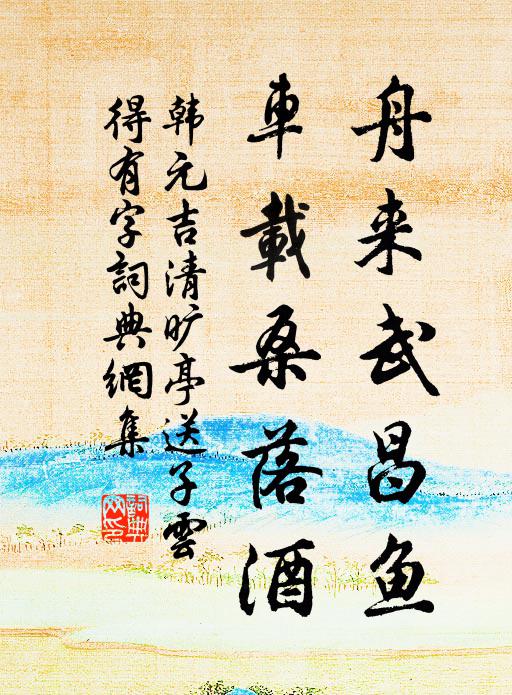 舟来武昌鱼
車載桑落酒
韩元吉清旷亭送子雲
得有字詞典網集